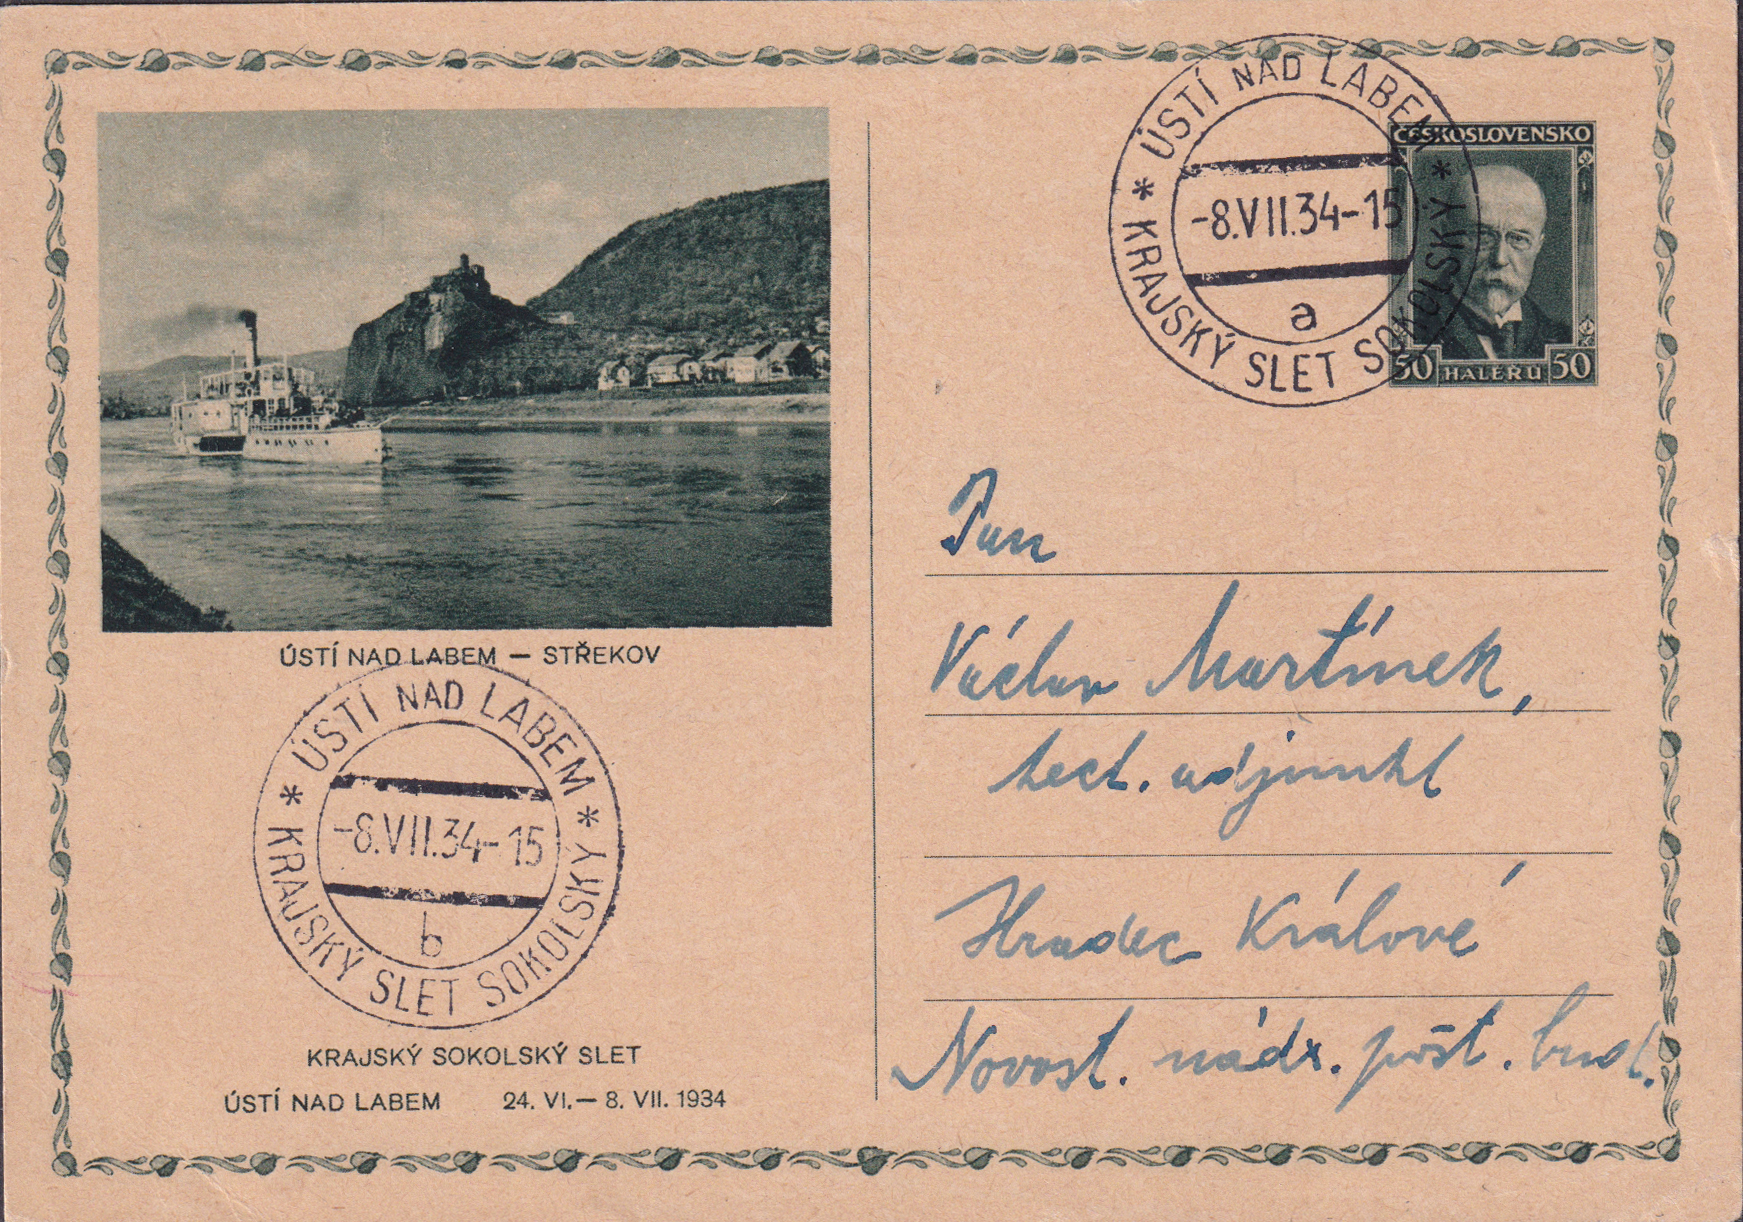 ÚSTÍ NAD LABEM — STŘEKOV
* ÚSTÍ NAD LABEM *
KRAJSKÝ SLET SOKOLSKÝ
-8.VII.34-15
b
KRAJSKÝ SOKOLSKÝ SLET
ÚSTÍ NAD LABEM 24. VI.— 8. VII. 1934
* ÚSTÍ NAD LABEM *
KRAJSKÝ SLET SOKOLSKÝ
-8.VII.34-15
a
ČESKOSLOVENSKO
50 HALÉŘŮ 50
Pan
Václav Martínek,
adjunkt
Hradec Králové
Novost. nádr. pošt. bud.